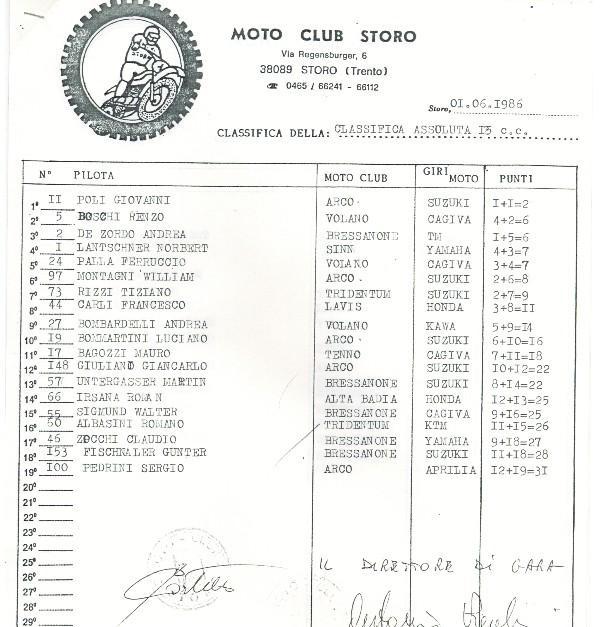 MOTO CLUB STORO
Via Regensburger, 6
38089 STORO (Trento)
☎ 0465 / 66241 - 66112
Storo, 01.06.1986
CLASSIFICA DELLA: CLASSIFICA ASSOLUTA I5 c.c.
N° PILOTA MOTO CLUB GIRI MOTO PUNTI
1° II POLI GIOVANNI ARCO SUZUKI I+I=2
2° 5 BOSCHI RENZO VOLANO CAGIVA 4+2=6
3° 2 DE ZORDO ANDREA BRESSANONE TM I+5=6
4° I LANTSCHNER NORBERT SINN YAMAHA 4+3=7
5° 24 PALLA FERRUCCIO VOLANO CAGIVA 3+4=7
6° 97 MONTAGNI WILLIAM ARCO SUZUKI 2+6=8
7° 73 RIZZI TIZIANO TRIDENTUM SUZUKI 2+7=9
8° 44 CARLI FRANCESCO LAVIS HONDA 3+8=II
9° 27 BOMBARDELLI ANDREA VOLANO KAWA 5+9=I4
10° I9 BOMMARTINI LUCIANO ARCO SUZUKI 6+I0=I6
11° I7 BAGOZZI MAURO TENNO CAGIVA 7+II=I8
12° I48 GIULIANI GIANCARLO ARCO SUZUKI I0+I2=22
13° 57 UNTERGASSER MARTIN BRESSANONE SUZUKI 8+I4=22
14° 66 IRSANA ROMAN ALTA BADIA HONDA I2+I3=25
15° 55 SIGMUND WALTER BRESSANONE CAGIVA 9+I6=25
16° 60 ALBASINI ROMANO TRIDENTUM KTM II+I5=26
17° 46 ZOCCHI CLAUDIO BRESSANONE YAMAHA 9+I8=27
18° I53 FISCHNALER GUNTER BRESSANONE SUZUKI II+I8=28
19° I00 PEDRINI SERGIO ARCO APRILIA I2+I9=3I
20°
21°
22°
23°
24°
25° IL DIRETTORE DI GARA
26°
27°
28°
29°